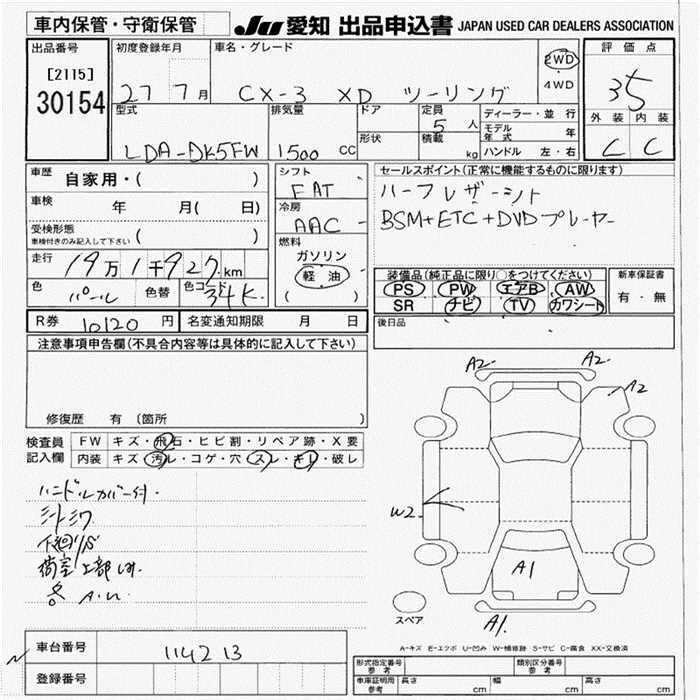 車内保管・守衛保管
JU 愛知 出品申込書 JAPAN USED CAR DEALERS ASSOCIATION
出品番号
[2115]
30154
初度登録年月
27 7月
車名・グレード
CX-3 XD ツーリング
2WD
4WD
評価点
35
外装 内装
C C
型式
LDA-DK5FW
排気量
1500 cc
ドア
形状
定員
5 人
積載
kg
ディーラー・並行
モデル年式 年
ハンドル 左・右
車歴
自家用・( )
車検 年 月( 日)
受検形態
車検付きのみ記入して下さい ( )
走行
19万1千927km
色
パール
色替
色コード
34K
シフト
FAT
冷房
AAC
燃料
ガソリン
軽油
( )
セールスポイント(正常に機能するものに限ります)
ハーフレザーシート
BSM+ETC+DVDプレーヤー
装備品(純正品に限り○をつけてください)
PS PW エアB AW
SR ナビ TV カワシート
新車保証書
有・無
後日品
R券 10120 円
名変通知期限 月 日
注意事項申告欄(不具合内容等は具体的に記入して下さい)
修復歴 有 〔箇所 〕
検査員記入欄
FW キズ・飛石・ヒビ割・リペア跡・X要
内装 キズ・汚レ・コゲ・穴・スレ・キレ・破レ
ハンドルカバー付.
シートシワ
下回り
上部
A2
A2
A2
W2
A1
A1
スペア
A-キズ E-エクボ U-凹み W-補修跡 S-サビ C-腐食 XX-交換済
車台番号
114213
登録番号
形式指定番号
参考
類別区分番号
参考
車庫証明用
参考
長さ cm 幅 cm 高さ cm